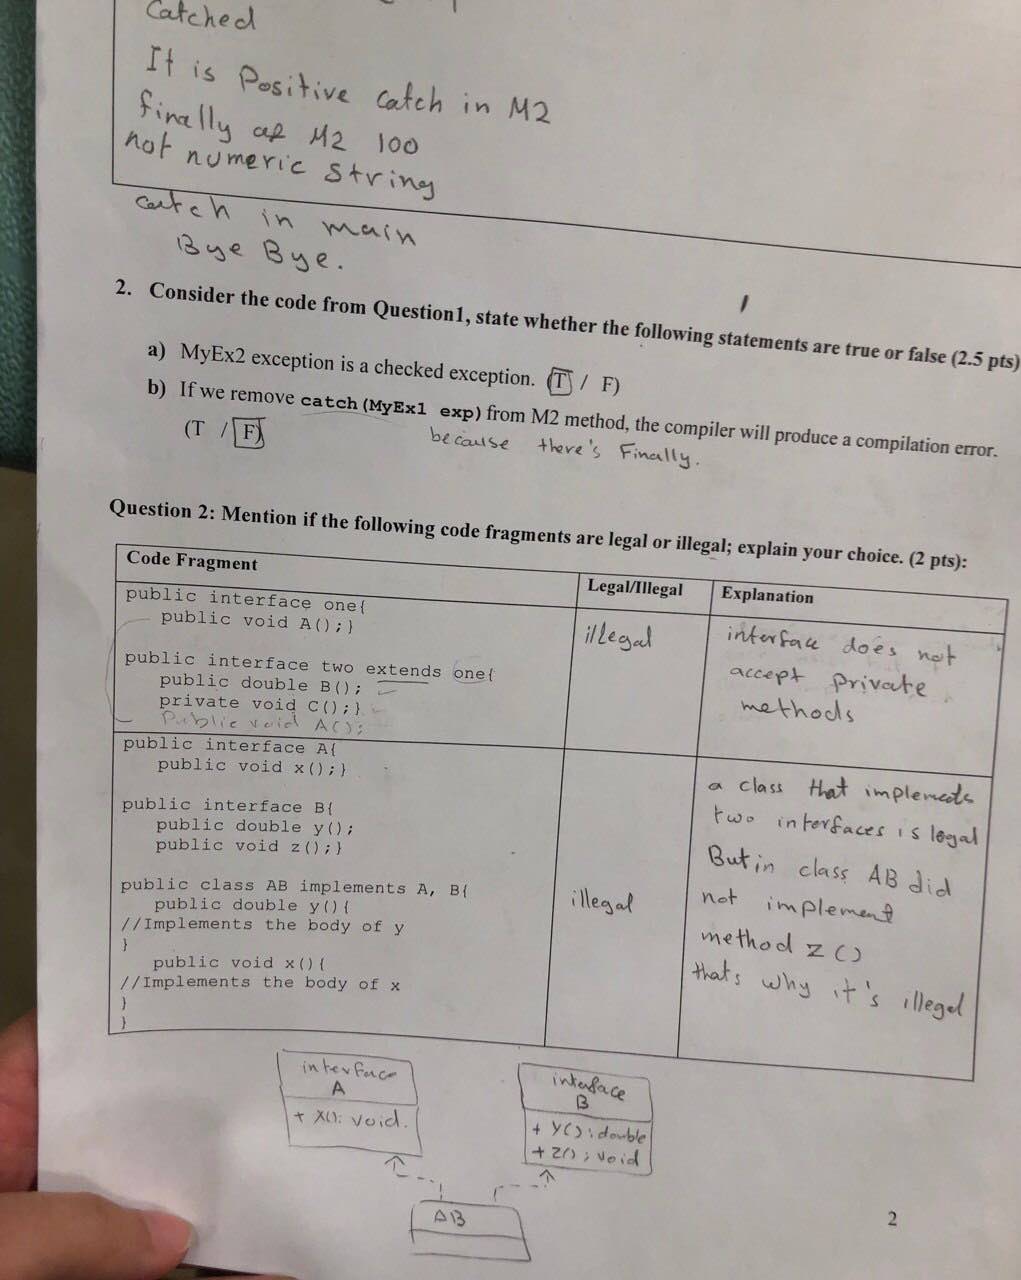 Catched
It is Positive catch in M2
finally of M2 100
not numeric string
catch in main
Bye Bye.
2. Consider the code from Question1, state whether the following statements are true or false (2.5 pts)
a) MyEx2 exception is a checked exception. (T / F)
b) If we remove catch(MyEx1 exp) from M2 method, the compiler will produce a compilation error.
(T / F)
because there's Finally.
Question 2: Mention if the following code fragments are legal or illegal; explain your choice. (2 pts):
Code Fragment
Legal/Illegal
Explanation
public interface one{
public void A();}
public interface two extends one{
public double B();
private void C();}
Public void A();
illegal
interface does not
accept private
methods
public interface A{
public void x();}
public interface B{
public double y();
public void z();}
public class AB implements A, B{
public double y(){
//Implements the body of y
}
public void x(){
//Implements the body of x
}
}
illegal
a class that implements
two interfaces is legal
But in class AB did
not implement
method z()
thats why it's illegal
interface
A
+ X(): void.
interface
B
+ Y(): double
+ Z(): void
AB
2